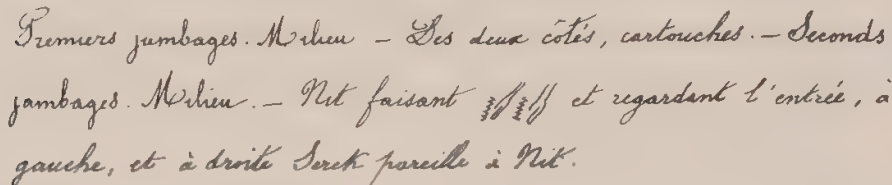 Premiers jambages. Milieu – Des deux côtés, cartouches. – Seconds
jambages. Milieu. – Nit faisant et regardant l'entrée, à
gauche, et à droite Serck pareille à Nit.